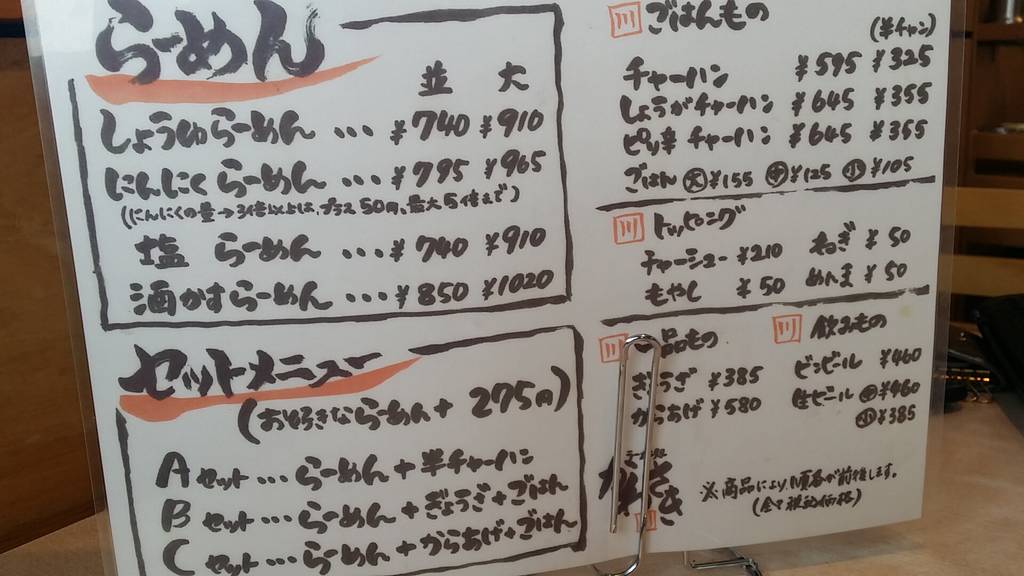 らーめん
並 大
しょうゆらーめん … ¥740 ¥910
にんにくらーめん … ¥795 ¥965
(にんにくの量→3倍以上は、プラス50円、最大5倍まで)
塩 らーめん … ¥740 ¥910
酒かすらーめん … ¥850 ¥1020
セットメニュー
(お好きならーめん+275円)
Aセット…らーめん+半チャーハン
Bセット…らーめん+ぎょうざ+ごはん
Cセット…らーめん+からあげ+ごはん
川 ごはんもの
(半チャン)
チャーハン ¥595 ¥325
しょうがチャーハン ¥645 ¥355
ピリ辛チャーハン ¥645 ¥355
ごはん 大¥155 中¥125 小¥105
川 トッピング
チャーシュー ¥210 ねぎ ¥50
もやし ¥50 めんま ¥50
川 品もの
ぎょうざ ¥385
からあげ ¥580
川 飲みもの
ビンビール ¥460
生ビール 中¥460
小¥385
※商品により順番が前後します。
(全て税込価格)